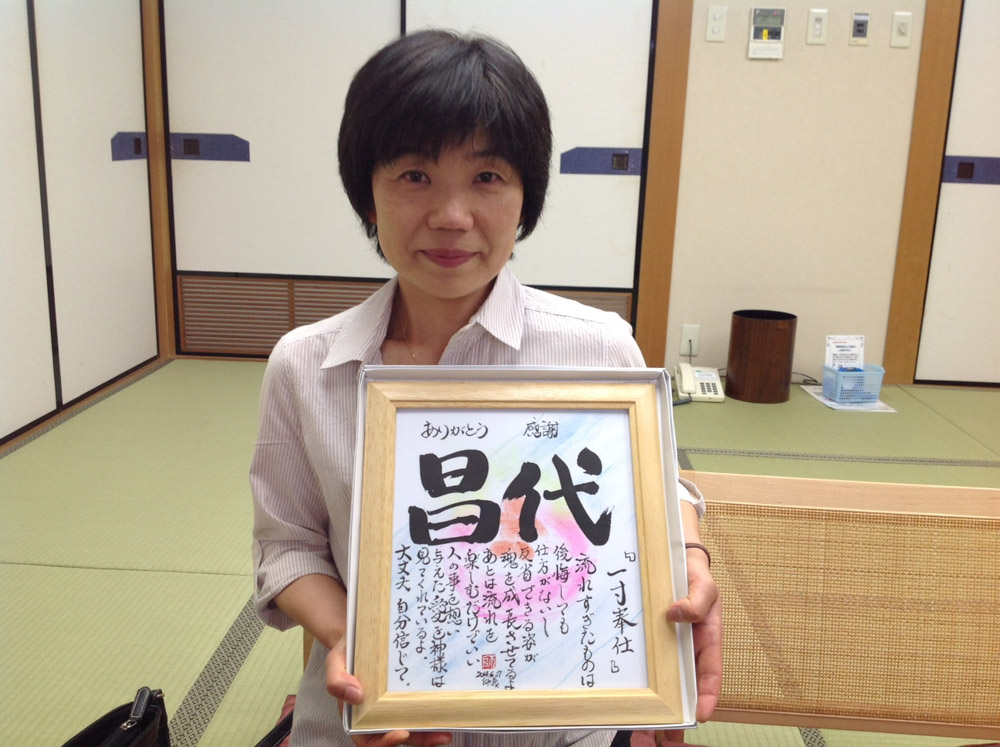 ありがとう 感謝
昌代
『一寸奉仕』
流れすぎたものは
後悔しても
仕方がないし
反省できる姿が
魂を成長させてるよ
あとは流れを
楽しむだけでいい
人の事を想い
与えた愛を神様は
見てくれているよ。
大丈夫 自分信じて。
2014.6.27